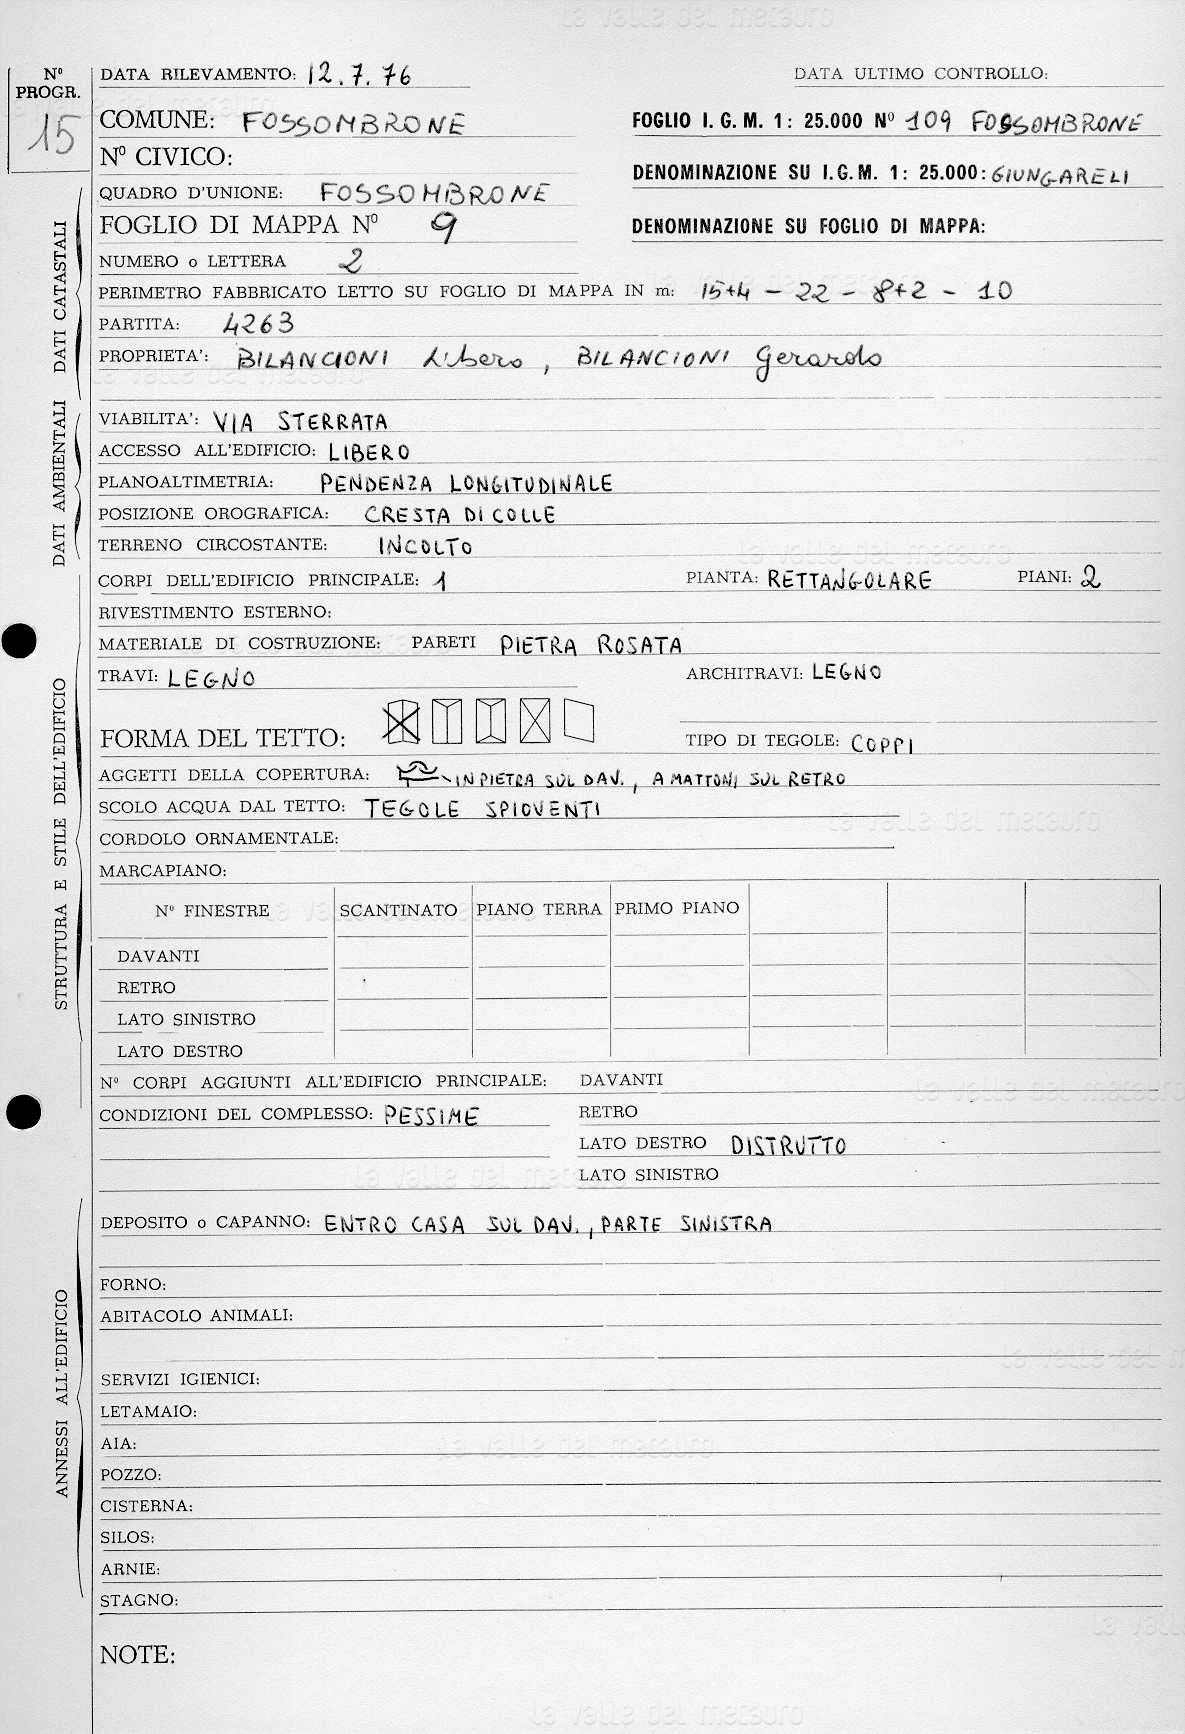 la valle del metauro
Nº PROGR. 15
DATA RILEVAMENTO: 12.7.76 DATA ULTIMO CONTROLLO:
COMUNE: FOSSOMBRONE FOGLIO I. G. M. 1: 25.000 Nº 109 FOSSOMBRONE
Nº CIVICO: DENOMINAZIONE SU I.G.M. 1: 25.000: GIUNGARELI
QUADRO D'UNIONE: FOSSOMBRONE
FOGLIO DI MAPPA Nº 9 DENOMINAZIONE SU FOGLIO DI MAPPA:
NUMERO o LETTERA 2
PERIMETRO FABBRICATO LETTO SU FOGLIO DI MAPPA IN m: 15+4 - 22 - 8+2 - 10
PARTITA: 4263
PROPRIETA': BILANCIONI Libero, BILANCIONI Gerardo
DATI CATASTALI
VIABILITA': VIA STERRATA
ACCESSO ALL'EDIFICIO: LIBERO
PLANOALTIMETRIA: PENDENZA LONGITUDINALE
POSIZIONE OROGRAFICA: CRESTA DI COLLE
TERRENO CIRCOSTANTE: INCOLTO
DATI AMBIENTALI
CORPI DELL'EDIFICIO PRINCIPALE: 1 PIANTA: RETTANGOLARE PIANI: 2
RIVESTIMENTO ESTERNO:
MATERIALE DI COSTRUZIONE: PARETI PIETRA ROSATA
TRAVI: LEGNO ARCHITRAVI: LEGNO
FORMA DEL TETTO: TIPO DI TEGOLE: COPPI
AGGETTI DELLA COPERTURA: IN PIETRA SUL DAV., A MATTONI SUL RETRO
SCOLO ACQUA DAL TETTO: TEGOLE SPIOVENTI
CORDOLO ORNAMENTALE:
MARCAPIANO:
Nº FINESTRE SCANTINATO PIANO TERRA PRIMO PIANO
DAVANTI
RETRO
LATO SINISTRO
LATO DESTRO
STRUTTURA E STILE DELL'EDIFICIO
Nº CORPI AGGIUNTI ALL'EDIFICIO PRINCIPALE: DAVANTI
CONDIZIONI DEL COMPLESSO: PESSIME RETRO
LATO DESTRO DISTRUTTO
LATO SINISTRO
DEPOSITO o CAPANNO: ENTRO CASA SUL DAV., PARTE SINISTRA
FORNO:
ABITACOLO ANIMALI:
SERVIZI IGIENICI:
LETAMAIO:
AIA:
POZZO:
CISTERNA:
SILOS:
ARNIE:
STAGNO:
ANNESSI ALL'EDIFICIO
NOTE: